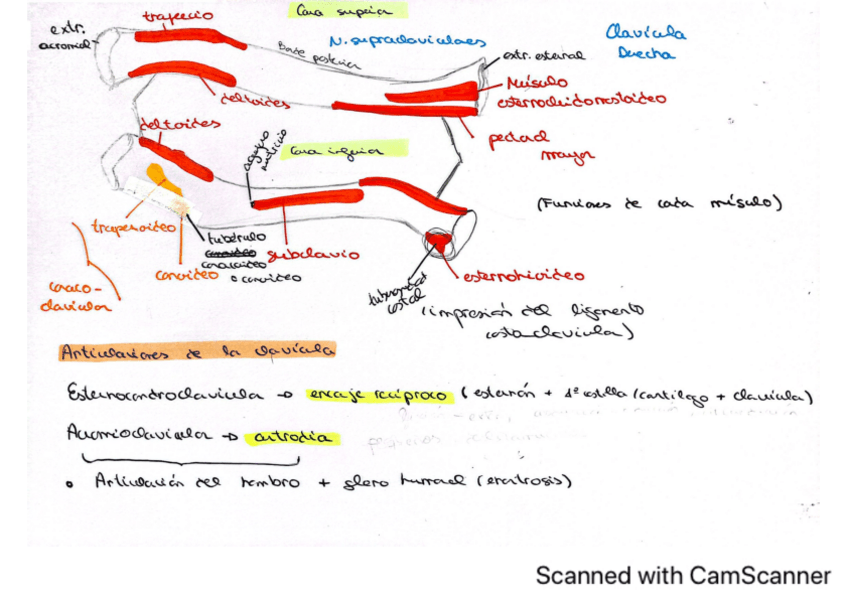 Cara superior
trapecio
extr.
acromial
N. supraclaviculares
Borde posterior
extr. esternal
Clavícula
Derecha
Músculo
esternocleidomastoideo
deltoides
pectoral
mayor
deltoides
agujero
nutricio
Cara inferior
(Funciones de cada músculo)
trapezoideo
tubérculo
conoideo
o conoideo
subclavio
conoideo
coraco-
clavicular
esternohioideo
tuberosidad
costal
(impresión del ligamento
costoclavicular)
Articulaciones de la clavícula
Esternocondroclavicular → encaje recíproco (esternón + 1ª costilla (cartílago + clavícula)
Acromioclavicular → artrodia
• Articulación del hombro + gleno humeral (enartrosis)
Scanned with CamScanner